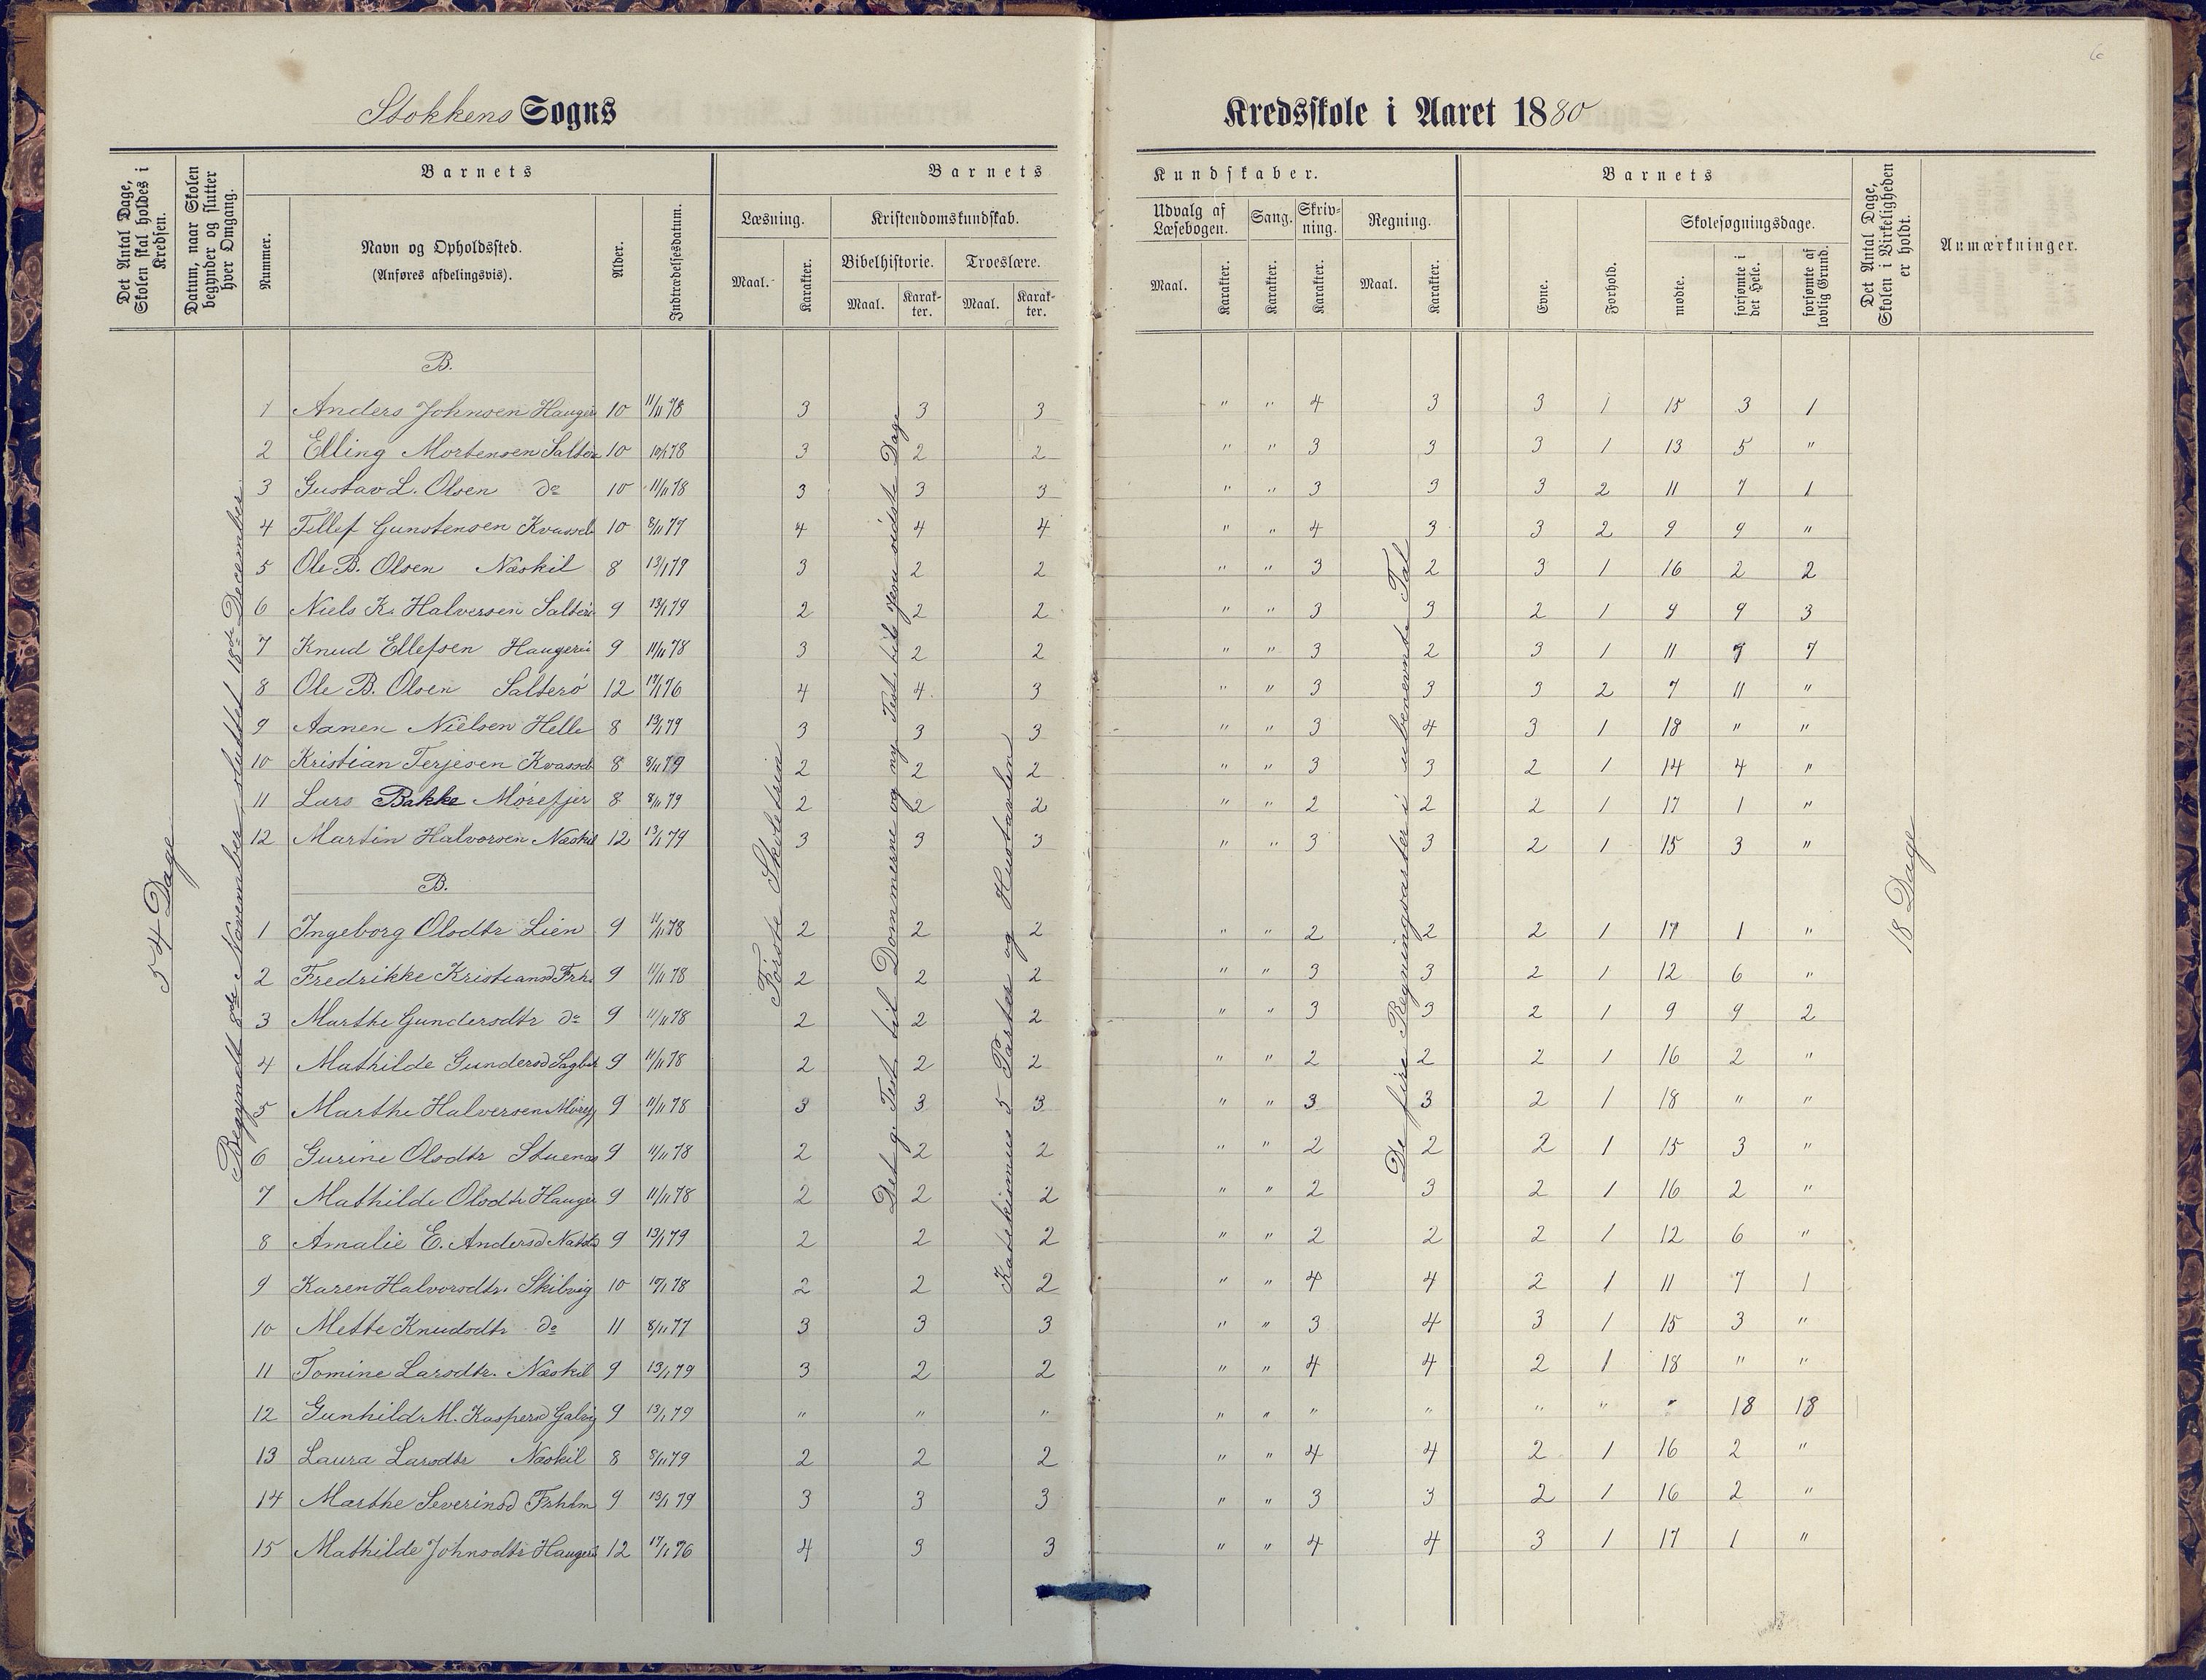 6
Stokkens Sogns Kredsskole i Aaret 1880
Det Antal Dage, Skolen skal holdes i Kredsen.
Datum, naar Skolen begynder og slutter hver Omgang.
Barnets
Nummer.
Navn og Opholdssted.
(Anføres afdelingsvis).
Alder.
Indtrædelsesdatum.
Barnets Kundskaber.
Læsning.
Maal.
Karakter.
Kristendomskundskab.
Bibelhistorie.
Maal.
Karakter.
Troeslære.
Maal.
Karakter.
Udvalg af Læsebogen.
Maal.
Karakter.
Sang.
Karakter.
Skrivning.
Karakter.
Regning.
Maal.
Karakter.
Barnets
Evne.
Forhold.
Skolesøgningsdage.
mødte.
forsømte i det Hele.
forsømte af lovlig Grund.
Det Antal Dage, Skolen i Virkeligheden er holdt.
Anmærkninger.
54 Dage
Begyndt 8de November sluttet 18de December
Første Skoletrin
Katekismus 5 Parter og Hustavlen
De fire Regningsarter i ubenævnte Tal
18 Dage
B.
1 Anders Johnsen 10 11/11 78 3 3 3 " " 4 3 3 1 15 3 1
2 Elling Mortensen 10 3 2 2 " " 3 3 3 1 13 5 "
3 Gustav L. Olsen do 10 11/11 78 3 3 3 " " 3 3 3 2 11 7 1
4 Tellef Gunstensen 10 8/11 77 4 4 4 " " 4 3 3 2 9 9 "
5 Ole B. Olsen Neskil 8 13/1 79 3 2 2 " " 3 2 3 1 16 2 2
6 Niels K. Halversen Salterø 9 13/1 79 2 2 2 " " 3 3 2 1 9 9 3
7 Knud Ellefsen 9 11/11 78 3 2 2 " " 3 2 3 1 11 7
8 Ole B. Olsen Salterø 12 17/1 76 4 4 3 " " 3 3 3 2 7 11 "
9 Aanen Nielsen Helle 8 13/1 79 3 3 3 " " 3 4 3 1 18 " "
10 Kristian Terjesen 8 8/11 79 2 2 2 " " 3 3 2 1 14 4 "
11 Lars Bakke Mørefjer 8 8/11 79 2 2 2 " " 2 2 2 1 17 1 "
12 Martin Halvorsen Neskil 12 13/1 79 3 3 3 " " 3 3 2 1 15 3 "
B.
1 Ingeborg Olsdtr Lien 9 11/11 78 2 2 2 " " 2 2 2 1 17 1 "
2 Fredrikke Kristiansd 9 11/11 78 2 2 2 " " 3 3 2 1 12 6 "
3 Marthe Gundersdtr do 9 11/11 78 2 2 2 " " 3 3 2 1 9 9 2
4 Mathilde Gundersd 9 11/11 78 2 2 2 " " 2 2 2 1 16 2 "
5 Marthe Halversen 9 11/11 78 3 3 3 " " 3 3 2 1 18 " "
6 Gurine Olsdtr 9 11/11 78 2 2 2 " " 2 2 2 1 15 3 "
7 Mathilde Olsdtr 9 11/11 78 2 2 2 " " 2 3 2 1 16 2 "
8 Amalie E. Andersd 9 13/1 79 2 2 2 " " 2 2 2 1 12 6 "
9 Karen Halvorsdtr. Skilvig 10 2 2 2 " " 4 4 2 1 11 7 1
10 Mette Knudsdtr do 11 8/11 77 3 3 3 " " 3 4 3 1 15 3 "
11 Tomine Larsdtr. Neskil 9 13/1 79 3 2 2 " " 4 4 2 1 18 " "
12 Gunhild M. Kaspersd 9 13/1 79 " " " " " " " " " " 18 18
13 Laura Larsdtr Neskil 8 8/11 79 2 2 2 " " 4 4 2 1 16 2 "
14 Marthe Severinsd 9 13/1 79 3 3 3 " " 3 3 2 1 16 2 "
15 Mathilde Johnsdtr 12 17/1 76 4 3 3 " " 4 4 3 1 17 1 "